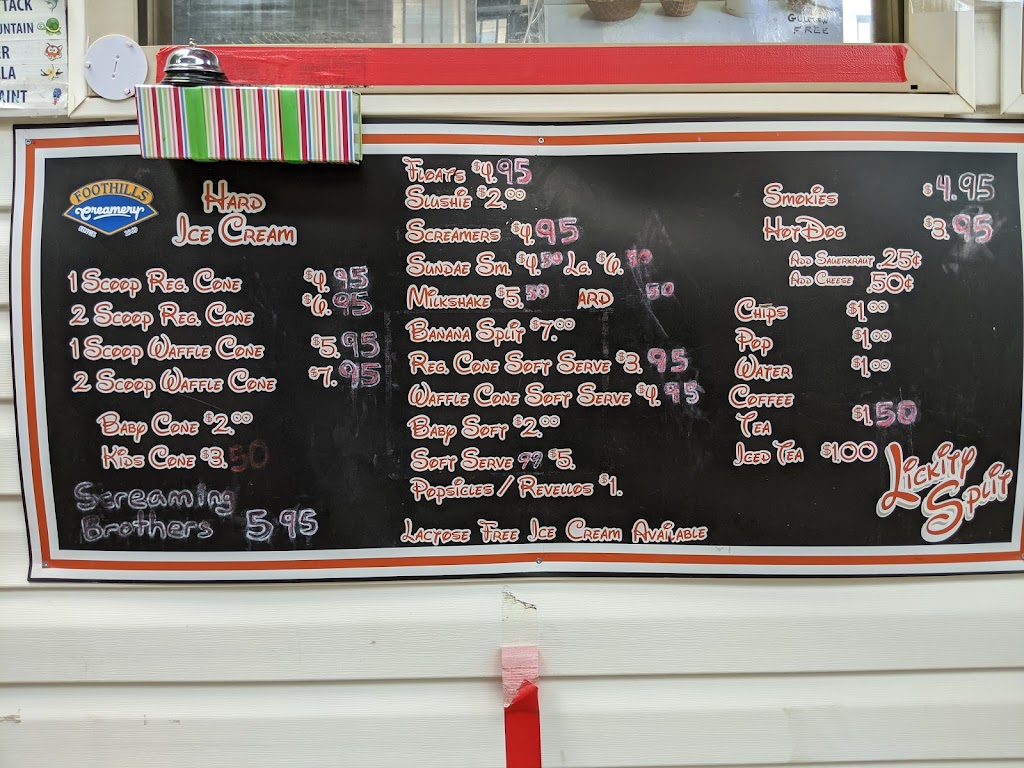 TACK
UNTAIN
ER
LA
AINT
GLUTEN
FREE
FOOTHILLS
Creamery
Hard
Ice Cream
1 Scoop Reg. Cone $4.95
2 Scoop Reg. Cone $6.95
1 Scoop Waffle Cone $5.95
2 Scoop Waffle Cone $7.95
Baby Cone $2.00
Kids Cone $3.50
Screaming
Brothers 5.95
Floats $4.95
Slushie $2.00
Screamers $4.95
Sundae Sm. $4.50 Lg. $6.50
Milkshake $5.50 ARD 50
Banana Split $7.00
Reg. Cone Soft Serve $3.95
Waffle Cone Soft Serve $4.95
Baby Soft $2.00
Soft Serve 99 $5.
Popsicles / Revellos $1.
Lactose Free Ice Cream Available
Smokies $4.95
Hot Dog $3.95
Add Sauerkraut .25¢
Add Cheese .50¢
Chips $1.00
Pop $1.00
Water $1.00
Coffee
Tea $1.50
Iced Tea $1.00
Lickity
Split